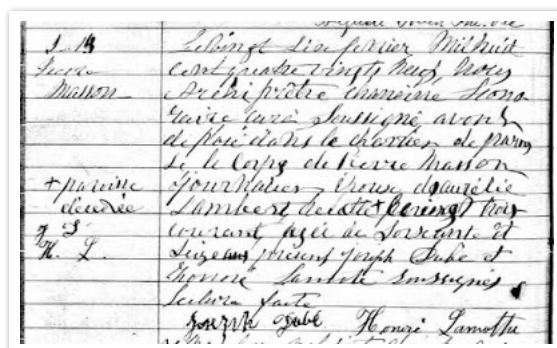 S 14
Pierre
Masson
Le vingt six fevrier mil huit
cent quatre vingt neuf, nous
Archiprêtre chanoine hono
raire curé soussigné avons
déposé dans le charnier de parois
se le corps de Pierre Masson
+ paroisse journalier, époux d'Aurélie
décédée Lambert de cette + le vingt trois
H. L. courant, agée de soixante et
seize ans présent Joseph Dubé et
Honoré Lamothe soussignés
lecture faite
Joseph Dubé Honoré Lamothe